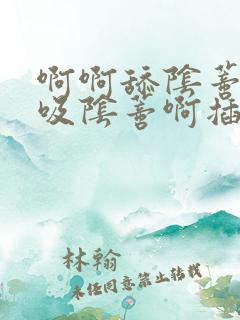 啊啊舔陰蒂
吸陰蒂啊插
林翰
未经同意禁止转载